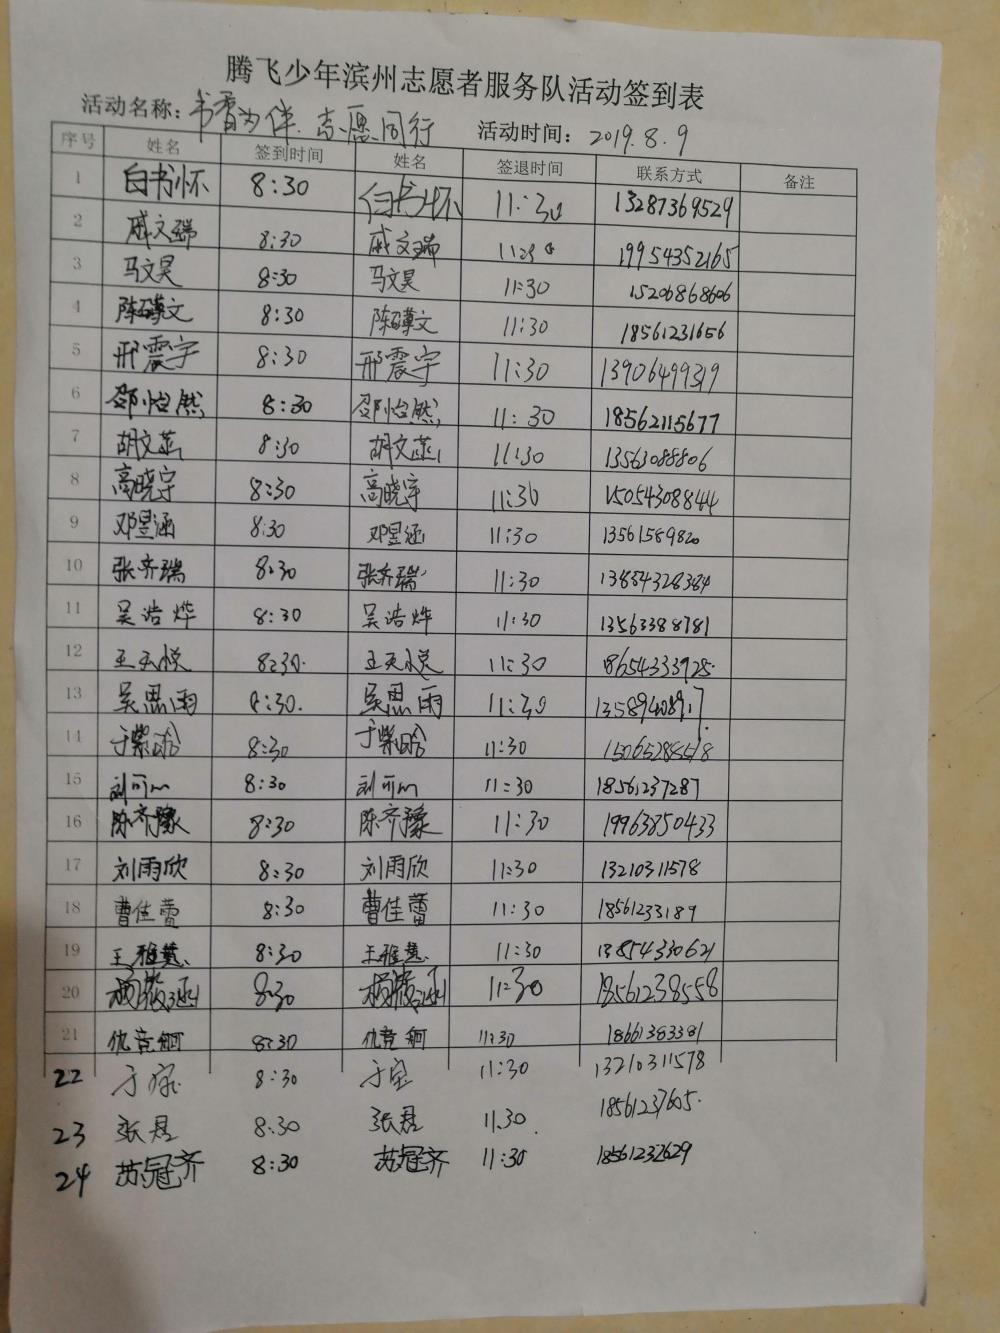 腾飞少年滨州志愿者服务队活动签到表
活动名称：书香为伴 志愿同行 活动时间：2019.8.9
序号 姓名 签到时间 姓名 签退时间 联系方式 备注
1 白书怀 8:30 白书怀 11:30 13287369529
2 戚文瑞 8:30 戚文瑞 11:30 19954352165
3 马文昊 8:30 马文昊 11:30 15206868606
4 陈 文 8:30 陈 文 11:30 18561231656
5 邢震宇 8:30 邢震宇 11:30 13906499319
6 邵怡然 8:30 邵怡然 11:30 18562115677
7 胡文 8:30 胡文 11:30 13563088806
8 高晓宇 8:30 高晓宇 11:30 15054308844
9 邓昱涵 8:30 邓昱涵 11:30 13561589820
10 张齐瑞 8:30 张齐瑞 11:30 13854328384
11 吴浩烨 8:30 吴浩烨 11:30 13563388781
12 王天悦 8:30. 王天悦 11:30 18654333925.
13 吴思雨 8:30. 吴思雨 11:30
14 于紫晗 8:30 于紫晗 11:30 15065288518
15 刘可 8:30 刘可 11:30 18561237287
16 陈齐豫 8:30 陈齐豫 11:30 19963850433
17 刘雨欣 8:30 刘雨欣 11:30 13210311578
18 曹佳蕾 8:30 曹佳蕾 11:30 18561233189
19 王雅慧 8:30 王雅慧 11:30 13854330621
20 杨 涵 8:30 杨 涵 11:30 18561238558
21 仇竞 8:30 仇竞 11:30 18661383381
22 于 8:30 于 11:30 13210311578
23 张君 8:30 张君 11.30 18561237605.
24 苏冠齐 8:30 苏冠齐 11:30 18561232629